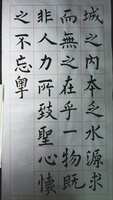 城之內本乏水源求
而無之在乎一物既
非人力所致聖心懷
之不忘粵